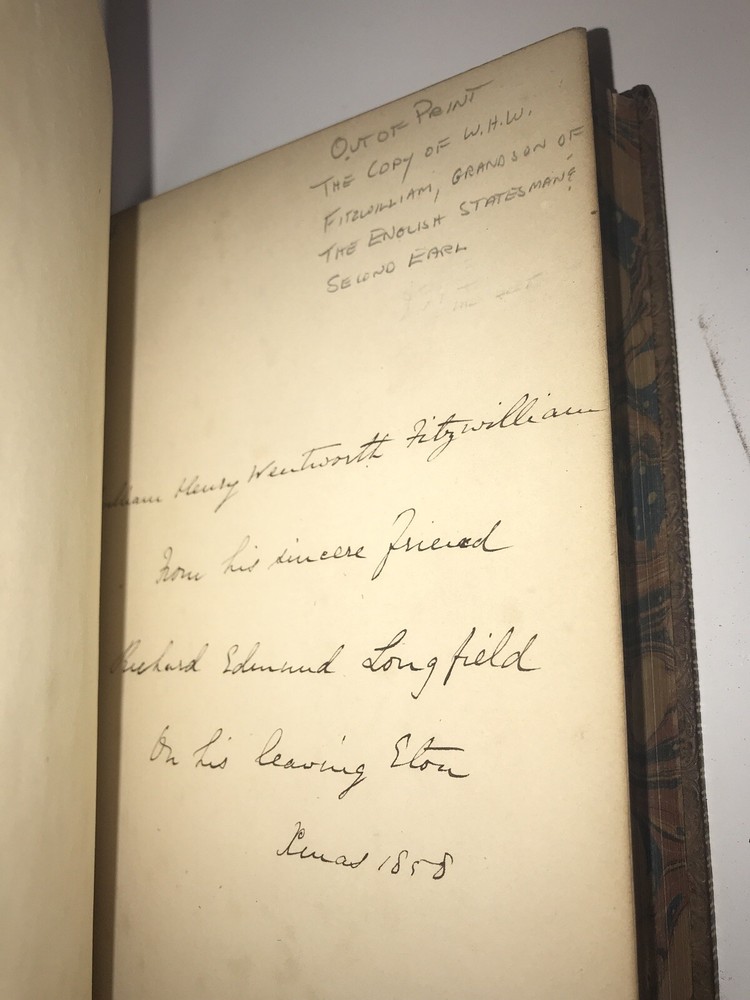 OUT OF PRINT
THE COPY OF W.H.W.
FITZWILLIAM, GRANDSON OF
THE ENGLISH STATESMAN &
SECOND EARL
William Henry Wentworth Fitzwilliam
From his sincere friend
Richard Edmund Longfield
On his leaving Eton
Xmas 1858